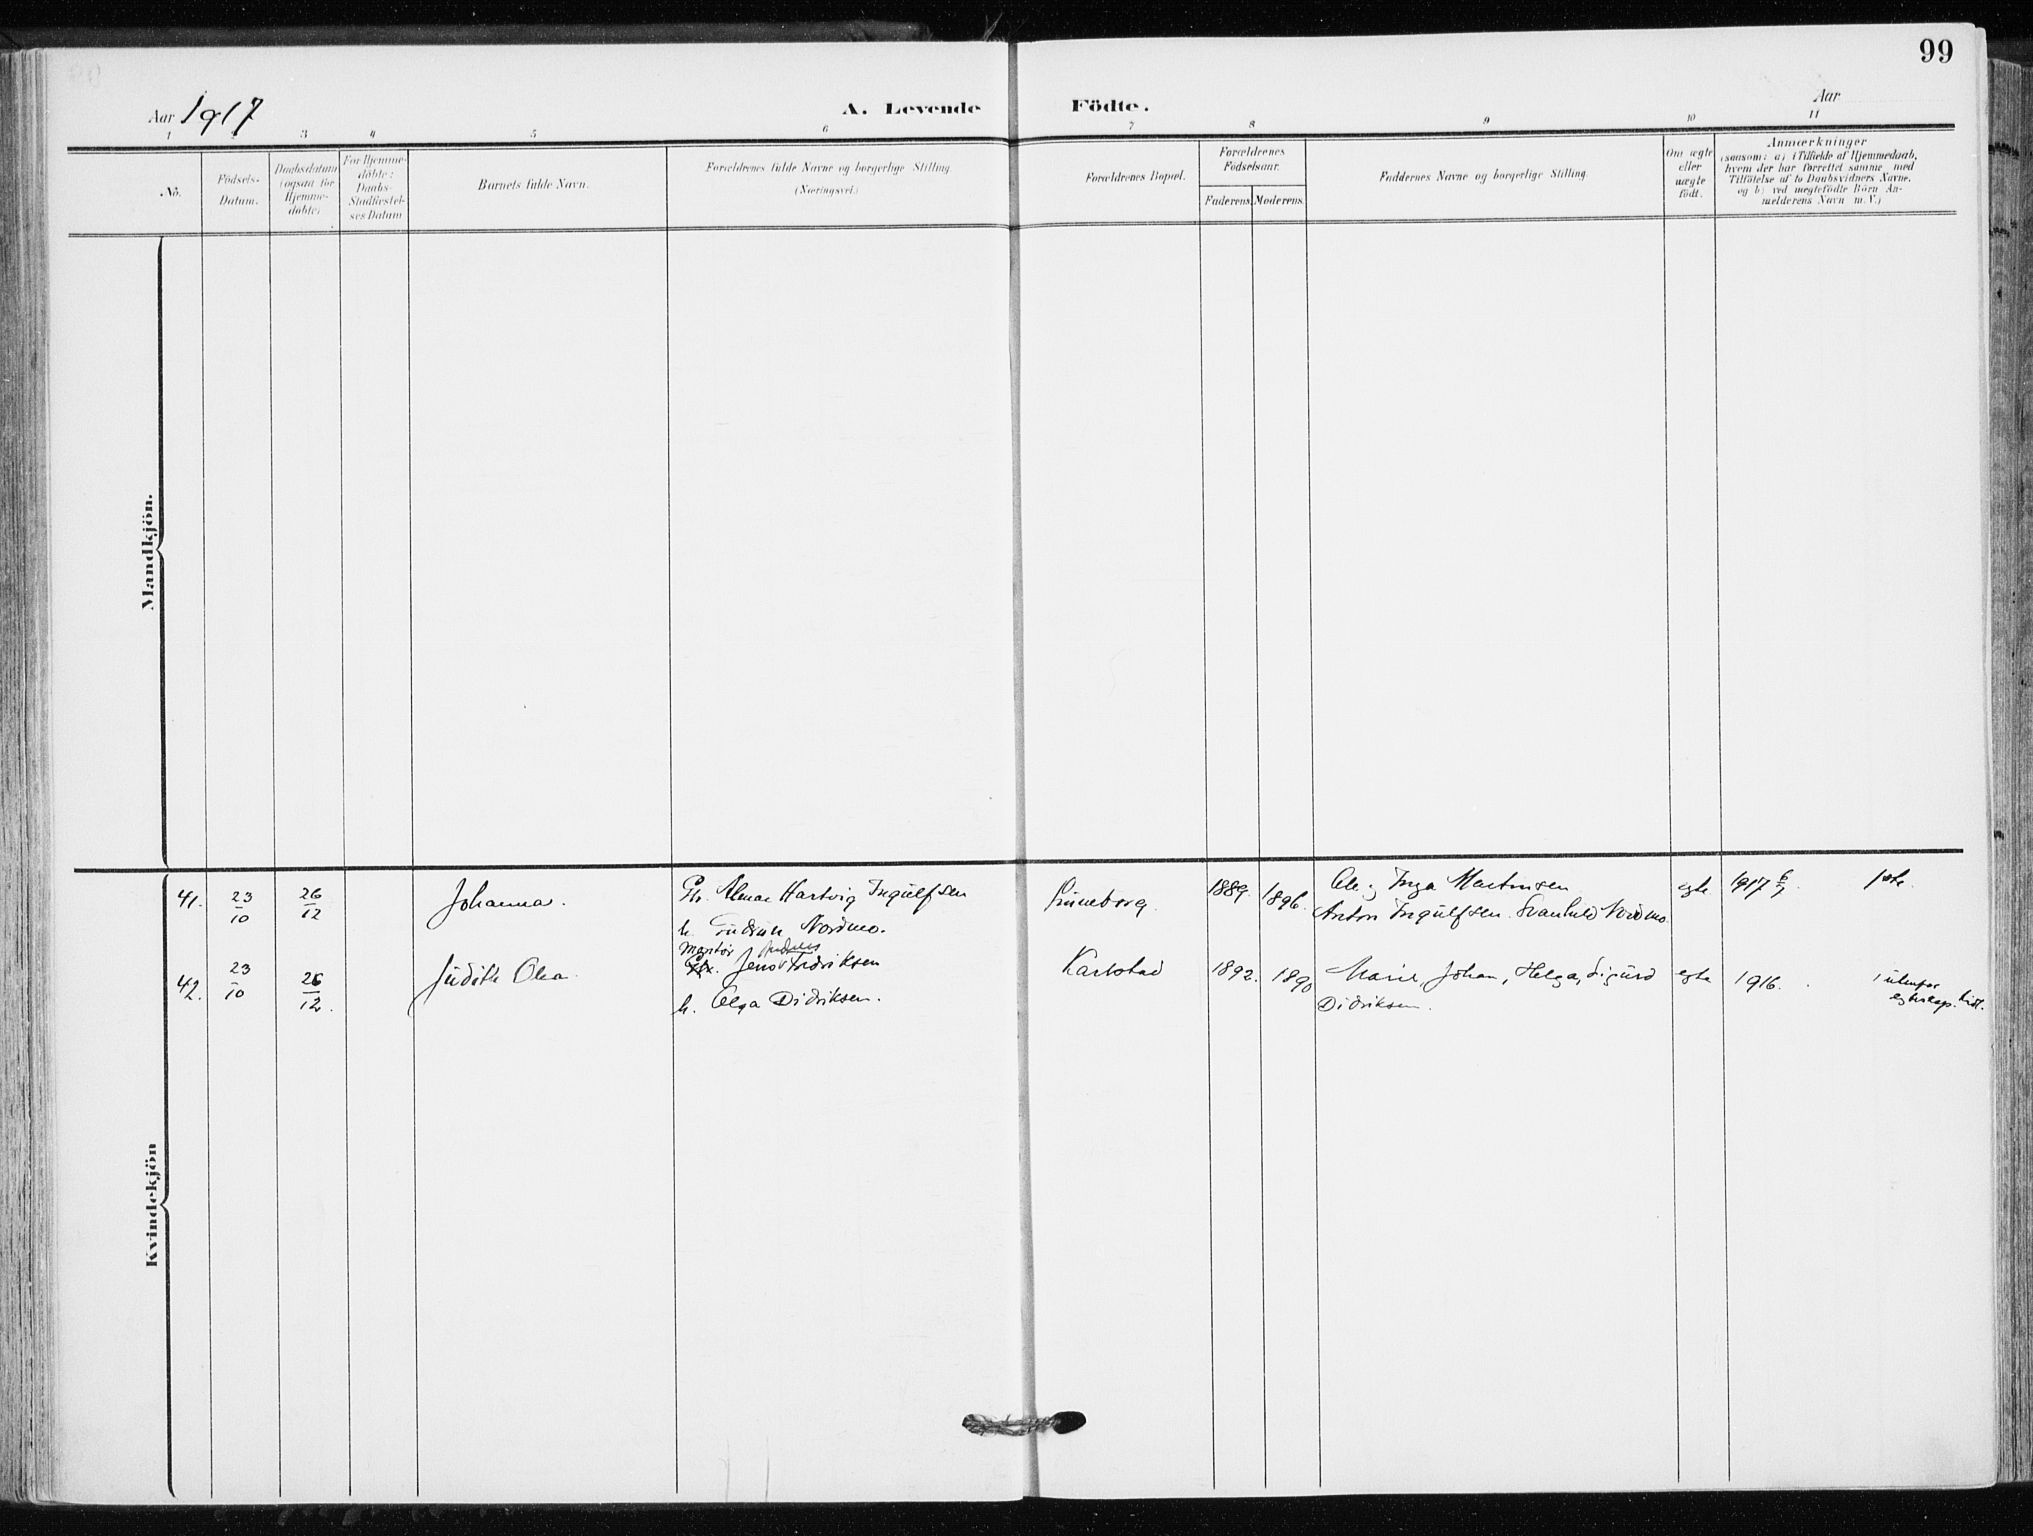 99
Aar 1917
A. Levende Födte.
Aar
1 2 3 4 5 6 7 8 9 10 11
No.
Födsels-
Datum.
Daabsdatum
(ogsaa for
Hjemme-
döbte)
For Hjemme-
döbte:
Daabs-
Stadfæstel-
ses Datum
Barnets fulde Navn.
Forældrenes fulde Navne og borgerlige Stilling
(Næringsvei.)
Forældrenes Bopæl.
Forældrenes
Födselsaar.
Faderens. Moderens.
Faddernes Navne og borgerlige Stilling.
Om ægte
eller
uægte
födt.
Anmærkninger
(saasom: a) i Tilfælde af Hjemmedaab,
hvem der har forrettet samme med
Tilföielse af to Daabsvidners Navne.
og b) ved uægtefödte Börn An-
melderens Navn m.V.)
Mandkjön.
41. 23/10 26/12 Johanna. Hartvig Ingulfsen
h. Gudrun Nordmo.
Rüneborg. 1889. 1896. Ole, Inga Martinsen
Anton Ingülfsen. Nordmo
egte 1917
42. 23/10 26/12 Judith Olea.
Montör
Jens Fredriksen
h. Olga Didriksen.
Karlstad 1892. 1890 Marie, Johan, Helga, Sigurd
Didriksen.
egte 1916. 1 utenfor
Kvindekjön